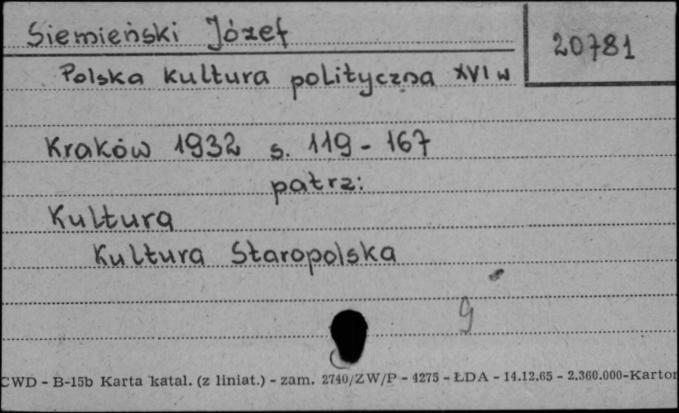 Siemieński Józef
20781
Polska kultura polityczna XVI w
Kraków 1932 s. 119-167
patrz:
Kultura
Kultura Staropolska
g
CWD - B-15b Karta katal. (z liniat.) - zam. 2740/ZW/P - 4275 - ŁDA - 14.12.65 - 2.360.000-Karton